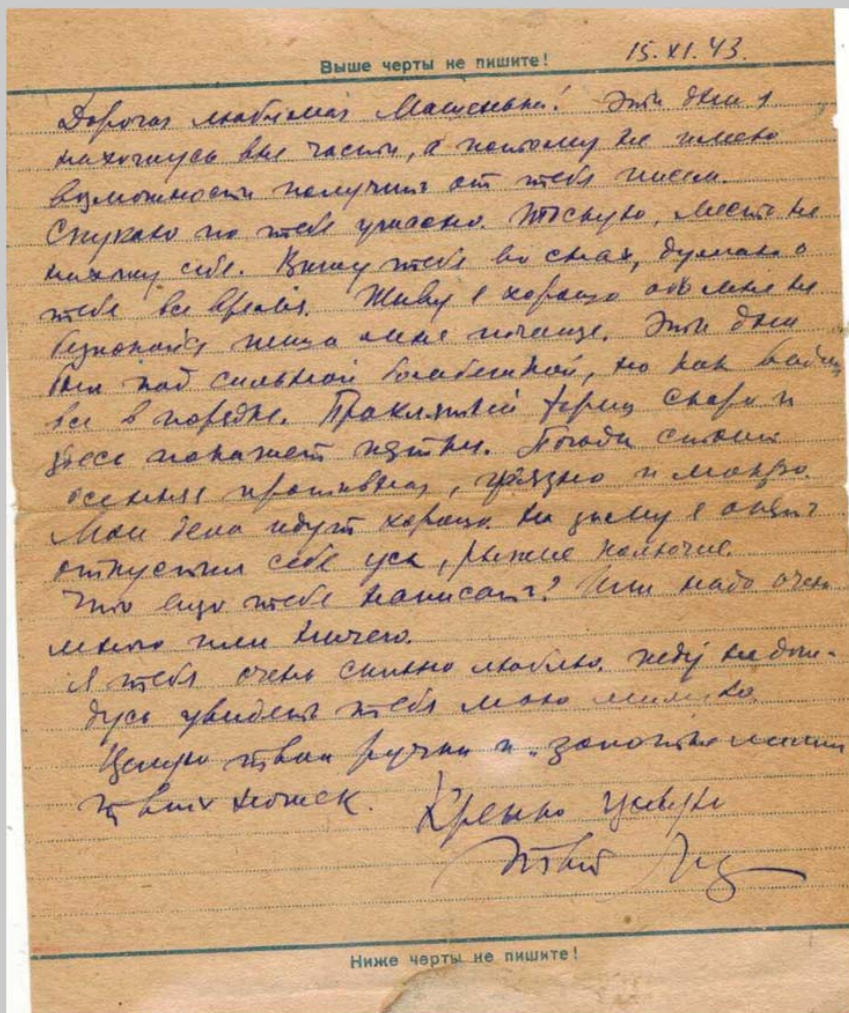 Выше черты не пишите! 15.XI.43.
Дорогая любимая Машенька! Эти дни я
нахожусь вне части, а потому не имею
возможности получить от тебя писем.
Скучаю по тебе ужасно. Тоскую, места не
нахожу себе. Вижу тебя во снах, думаю о
тебе все время. Живу я хорошо обо мне не
безпокойся пиши мне почаще. Эти дни
был под сильной бомбежкой, но как видишь
все в порядке. Проклятый фриц скоро и
здесь покажет пятки. Погода стоит
осенняя противная, грязно и мокро.
Мои дела идут хорошо. На зиму я опять
отпустил себе усы, рыжие колючие.
Что еще тебе написать? Или надо очень
много или ничего.
Я тебя очень сильно люблю. жду не дож-
дусь увидеть тебя мою
Целую твои ручки и
твоих ножек. Крепко целую
Твой
Ниже черты не пишите!